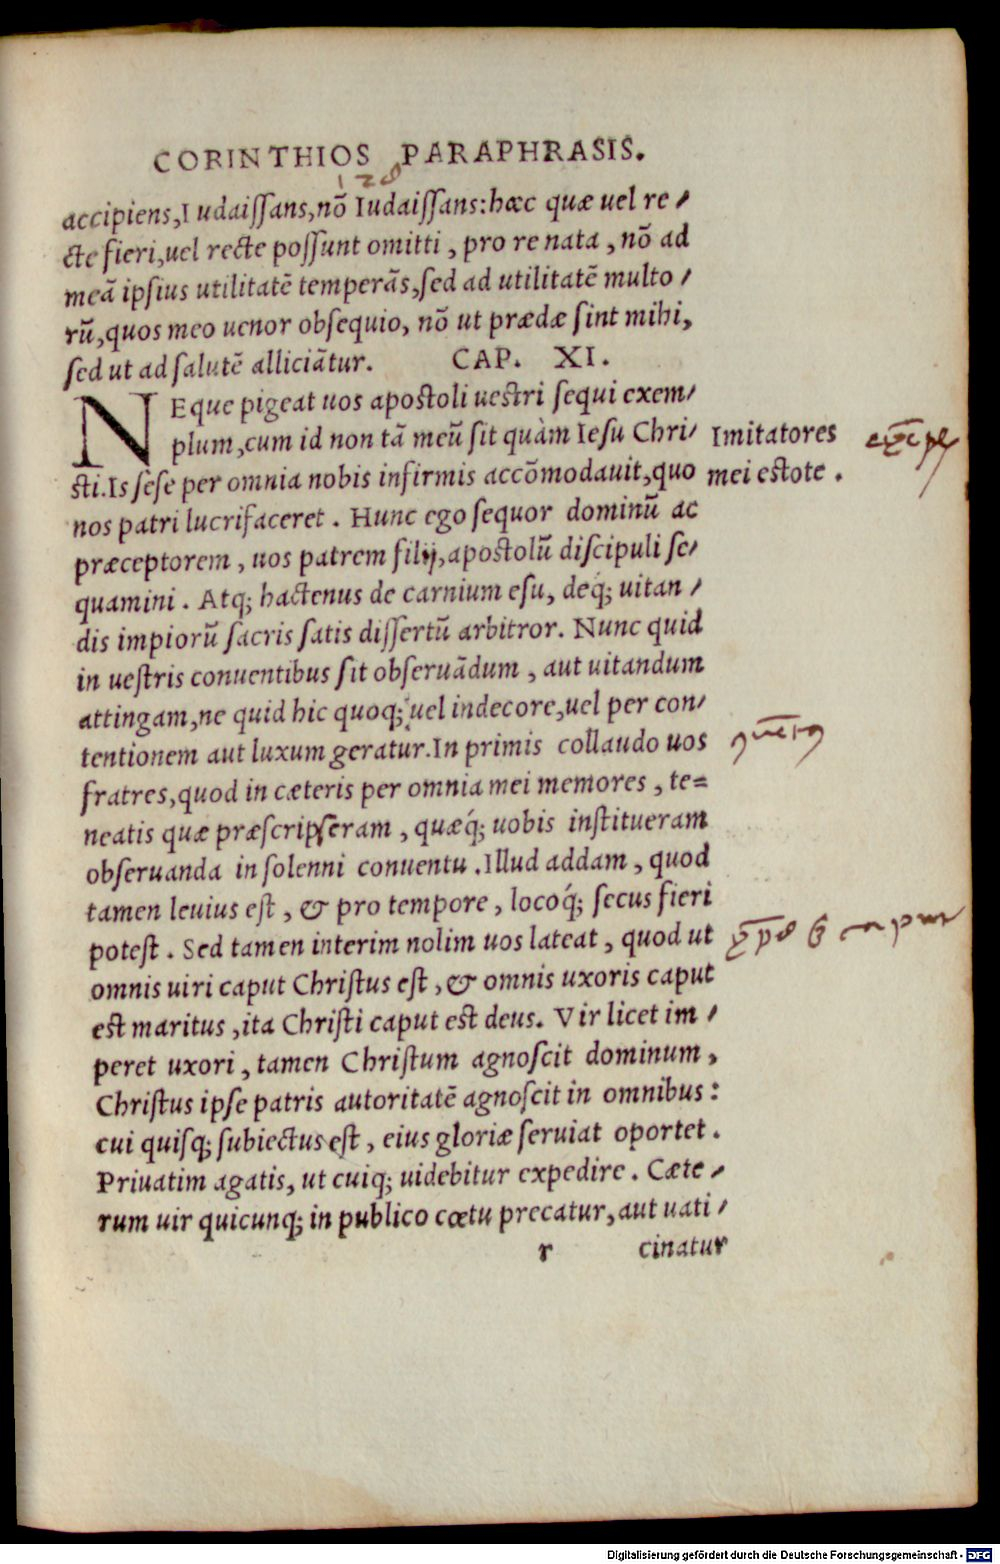 CORINTHIOS PARAPHRASIS.
128
accipiens,Iudaiſſans,nõ Iudaiſſans:hæc quæ uel re/
cte fieri,uel recte poſſunt omitti, pro re nata, nõ ad
meã ipſius utilitatẽ temperãs,ſed ad utilitatẽ multo/
rũ,quos meo uenor obſequio, nõ ut prædæ ſint mihi,
ſed ut ad ſalutẽ alliciãtur. CAP. XI.
NEque pigeat uos apoſtoli ueſtri ſequi exem/
plum,cum id non tã meũ ſit quàm Ieſu Chri/
Imitatores
ſti.Is ſeſe per omnia nobis infirmis accõmodauit,quo
mei eſtote.
nos patri lucrifaceret. Hunc ego ſequor dominũ ac
præceptorem, uos patrem filij,apoſtolũ diſcipuli ſe/
quamini. Atq; hactenus de carnium eſu, deq́; uitan/
dis impiorũ ſacris ſatis diſſertũ arbitror. Nunc quid
in ueſtris conuentibus ſit obſeruãdum, aut uitandum
attingam,ne quid hic quoq; uel indecore,uel per con/
tentionem aut luxum geratur.In primis collaudo uos
fratres,quod in cæteris per omnia mei memores, te=
neatis quæ præſcripſeram, quæq́; uobis inſtitueram
obſeruanda in ſolenni conuentu.Illud addam, quod
tamen leuius eſt, & pro tempore, locoq́; ſecus fieri
poteſt. Sed tamen interim nolim uos lateat, quod ut
omnis uiri caput Chriſtus eſt, & omnis uxoris caput
eſt maritus, ita Chriſti caput eſt deus. Vir licet im/
peret uxori, tamen Chriſtum agnoſcit dominum,
Chriſtus ipſe patris autoritatẽ agnoſcit in omnibus:
cui quiſq; ſubiectus eſt, eius gloriæ ſeruiat oportet.
Priuatim agatis, ut cuiq; uidebitur expedire. Cæte/
rum uir quicunq; in publico cœtu precatur, aut uati/
r cinatur
Digitalisierung gefördert durch die Deutsche Forschungsgemeinschaft - DFG